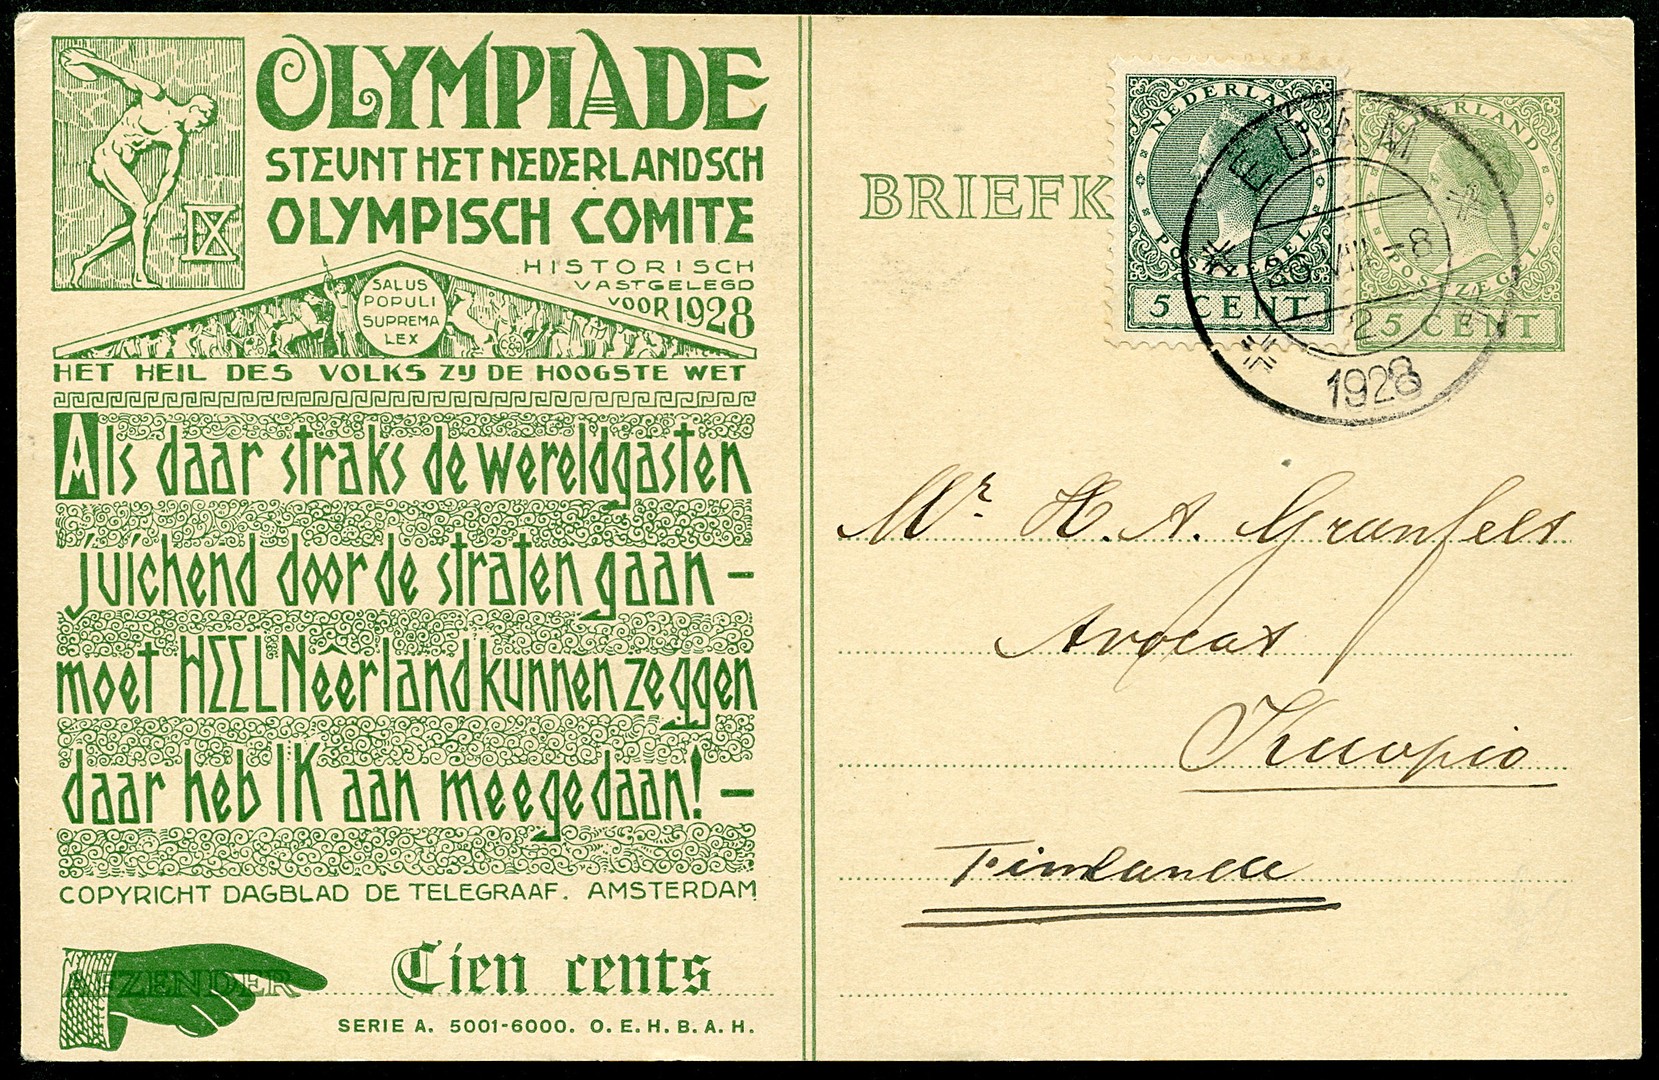 OLYMPIADE
STEUNT HET NEDERLANDSCH
OLYMPISCH COMITE
IX
HISTORISCH
VASTGELEGD
VOOR 1928
SALUS
POPULI
SUPREMA
LEX
HET HEIL DES VOLKS ZIJ DE HOOGSTE WET
Als daar straks de wereldgasten
juichend door de straten gaan –
moet HEEL Neêrland kunnen zeggen
daar heb IK aan meegedaan! –
COPYRICHT DAGBLAD DE TELEGRAAF. AMSTERDAM
AFZENDER
Cien cents
SERIE A. 5001-6000. O.E.H.B.A.H.
BRIEFK
NEDERLAND
POSTZEGEL
5 CENT
NEDERLAND
POSTZEGEL
5 CENT
EDAM
VIII
1928
Mr H. A. Granfelt
Avocat
Kuopio
Finlande